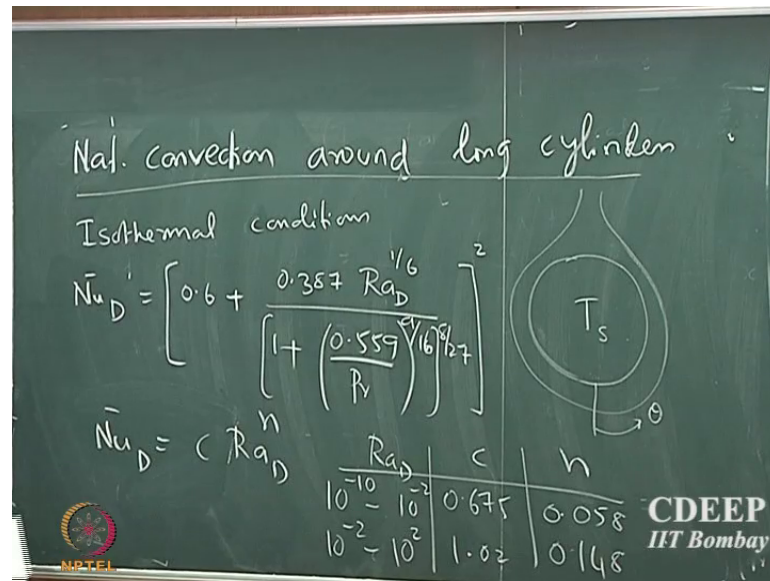 Nat. convection around long cylinders
Isothermal conditions
N̄u_D = [0.6 + 0.387 Ra_D^{1/6} / [1 + (0.559/Pr)^{9/16}]^{8/27}]^2
T_s
θ
N̄u_D = C Ra_D^n
Ra_D | C | n
10^{-10} - 10^{-2} | 0.675 | 0.058
10^{-2} - 10^{2} | 1.02 | 0.148
CDEEP
IIT Bombay
NPTEL